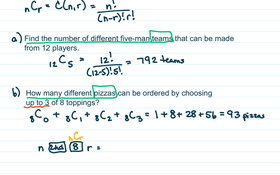 nCr = C(n,r) = n! / (n-r)! r!
a) Find the number of different five-man teams that can be made
from 12 players.
12C5 = 12! / (12-5)! 5! = 792 teams
b) How many different pizzas can be ordered by choosing
up to 3 of 8 toppings?
8C0 + 8C1 + 8C2 + 8C3 = 1 + 8 + 28 + 56 = 93 pizzas
nCr
n 8 r =